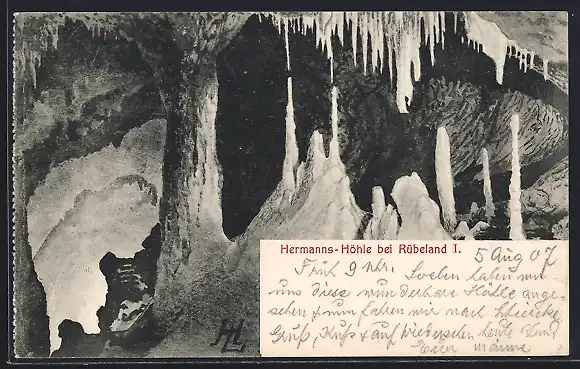 Hermanns-Höhle bei Rübeland I. 5 Aug 07
Früh 9 Uhr. Soeben haben wir
uns diese wunderbare Höhle ange-
sehen & nun fahren wir nach
Gruß, Kuß & auf Wiedersehen heute
HL